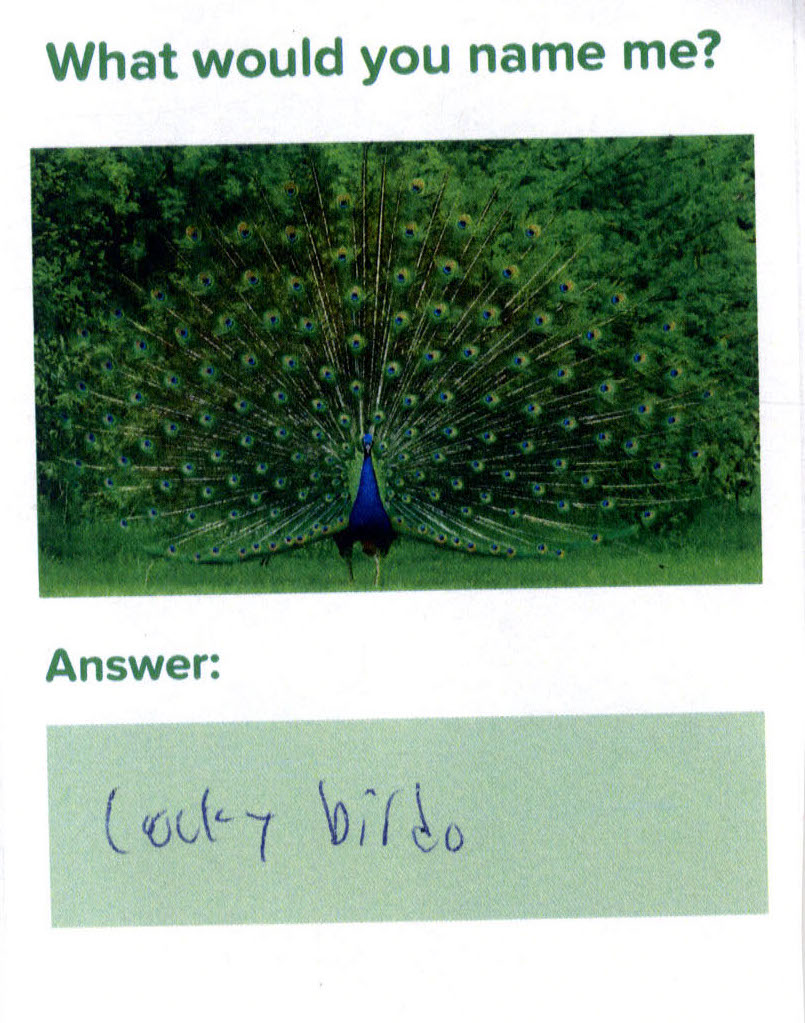 What would you name me?
Answer:
Cocky birdo